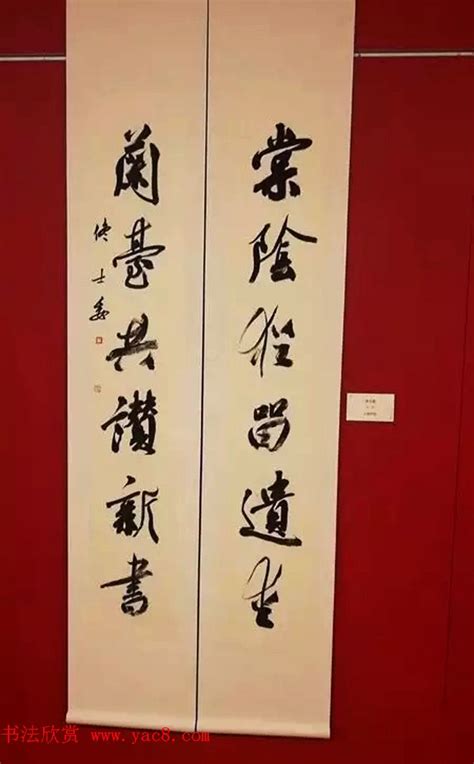 棠陰猶留遺愛
蘭臺共讚新書
书法欣赏 www.yac8.com